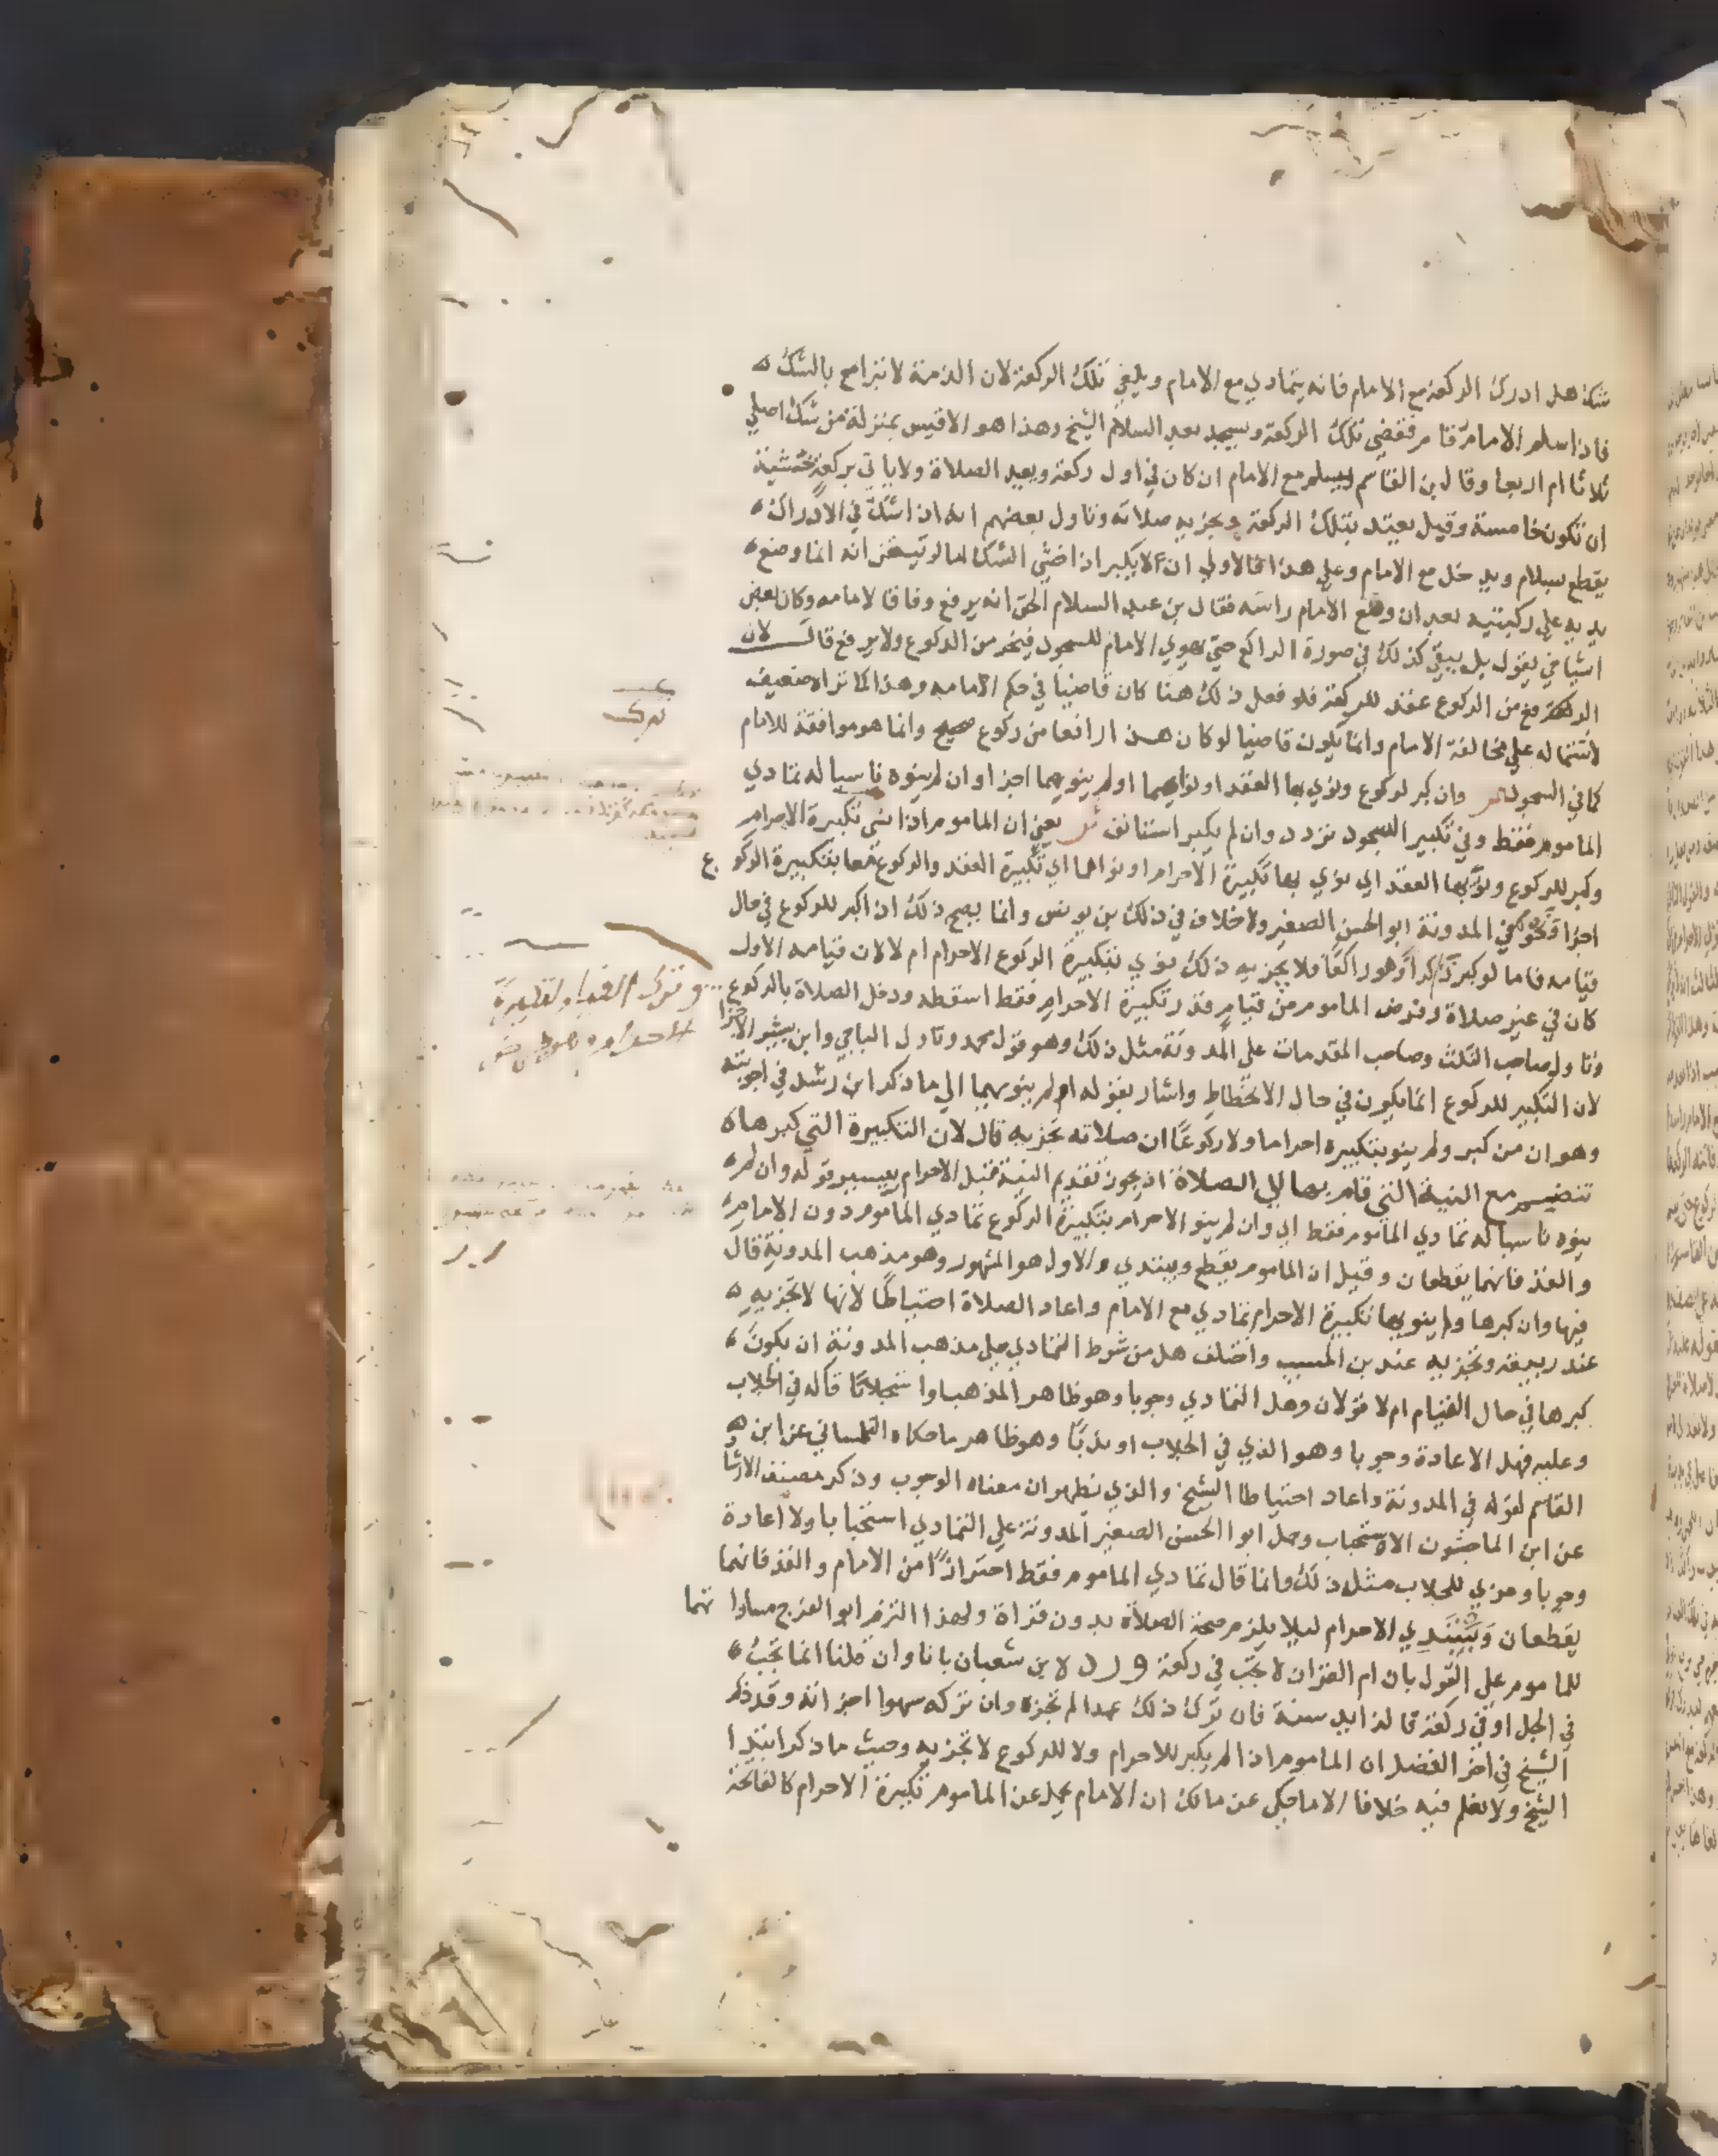 شك هل ادرك الركعة مع الامام فانه يتمادي مع الامام ويلغي تلك الركعة لان الذمة لا تبرا مع بالشك
فاذا سلم الامام قام فقضي تلك الركعة ويسجد بعد السلام الشيخ وهذا هو الاقيس بمنزلة من شك اصلي
ثلاثا ام اربعا وقال بن القاسم يسلم مع الامام ان كان في اول ركعة ويعيد الصلاة ولا ياتي بركعة خشية
ان تكون خامسة وقيل يعتد بتلك الركعة وتجزيه صلاته وتاول بعضهم انه ان اشك في الادراك
يقطع بسلام ويدخل مع الامام وعلي هذا فالاولي ان لا يكبر اذا خشي الشك اما لو تيقن انه انما وضع
يديه علي ركبتيه بعد ان رفع الامام راسه فقال بن عبد السلام الحق انه يرفع وفاقا لامامه وكان بعض
اشياخي يقول بل يبقي كذلك في صورة الراكع حتي يهوي الامام للسجود فيخر من الركوع ولا يرفع قال لان
الرفع من الركوع عقد للركعة فلو فعل ذلك هنا كان قاضيا في حكم امامه وهذا كما تراه ضعيف
لاشتماله علي مخالفة الامام وانما يكون قاضيا لو كان هذا رافعا من ركوع صحيح وانما هو موافقة للامام
كما في السجود ص وان كبر لركوع ونوي بها العقد او نواهما او لم ينوهما اجزا وان لم ينوه ناسيا له تمادي
الماموم فقط وفي تكبير السجود تردد وان لم يكبر استانف ش يعني ان الماموم اذا نسي تكبيرة الاحرام
وكبر للركوع ونوي بها العقد اي نوي بها تكبيرة الاحرام او نواهما اي تكبيرة العقد والركوع معا بتكبيرة الركوع
اجزا ونحوه في المدونة ابو الحسن الصغير ولا خلاف في ذلك بن يونس وانما يصح ذلك اذا كبر للركوع في حال
قيامه فاما لو كبر وهو راكعا فلا يجزيه ذلك نوي بتكبيرة الركوع الاحرام ام لا لان قيامه الاول
كان في غير صلاة وفرض الماموم من قيام قدر تكبيرة الاحرام فقط اسقطه ودخل الصلاة بالركوع
وتاول صاحب النكت وصاحب المقدمات علي المدونة مثل ذلك وهو قول محمد وتاول الباجي وابن بشير الاجزا
لان التكبير للركوع انما يكون في حال الانحطاط واشار بقوله او لم ينوهما الي ما ذكر ابن رشد في اجوبته
وهو ان من كبر ولم ينو بتكبيره احراما ولا ركوعا ان صلاته تجزيه قال لان التكبيرة التي كبرها
تنضم مع النية التي قام بها الي الصلاة اذ يجوز تقديم النية قبل الاحرام بيسير قوله وان لم
ينوه ناسيا له تمادي الماموم فقط اي وان لم ينو الاحرام بتكبيرة الركوع تمادي الماموم دون الامام
والفذ فانهما يقطعان وقيل ان الماموم يقطع ويبتدي والاول هو المشهور وهو مذهب المدونة قال
فيها وان كبرها ولم ينو بها تكبيرة الاحرام تمادي مع الامام واعاد الصلاة احتياطا لانها لا تجزيه
عند ربيعة وتجزيه عند بن المسيب واختلف هل من شرط التمادي علي مذهب المدونة ان يكون
كبرها في حال القيام ام لا قولان وهل التمادي وجوبا وهو ظاهر المذهب او استحبابا قاله في الجلاب
وعليه فهل الاعادة وجوبا وهو الذي في الجلاب او ندبا وهو ظاهر ما حكاه التلمساني عن ابن
القاسم لقوله في المدونة واعاد احتياطا الشيخ والذي يظهر ان معناه الوجوب وذكر مصنف الارشاد
عن ابن الماجشون الاستحباب وحمل ابو الحسن الصغير المدونة علي التمادي استحبابا ولا اعادة
وجوبا وعزي للجلاب مثل ذلك وانما قال تمادي الماموم فقط احترازا من الامام والفذ فانهما
يقطعان ويبتدي الاحرام ليلا يلزم صحة الصلاة بدون قراة ولهذا التزم ابو الفرج مساواتهما
للماموم علي القول بان ام القران لا تجب في ركعة ورد لابن شعبان بانا وان قلنا انما تجب
في الجل او في ركعة قال ذا يد سنة فان ترك ذلك عمدا لم تجزه وان تركه سهوا اجزاته وقد ذكر
الشيخ في اخر الفصل ان الماموم اذا لم يكبر للاحرام ولا للركوع لا تجزيه وحيث ما ذكر ابتدا
الشيخ ولا نعلم فيه خلافا الا ما حكي عن مالك ان الامام يحمل عن الماموم تكبيرة الاحرام كالفاتحة